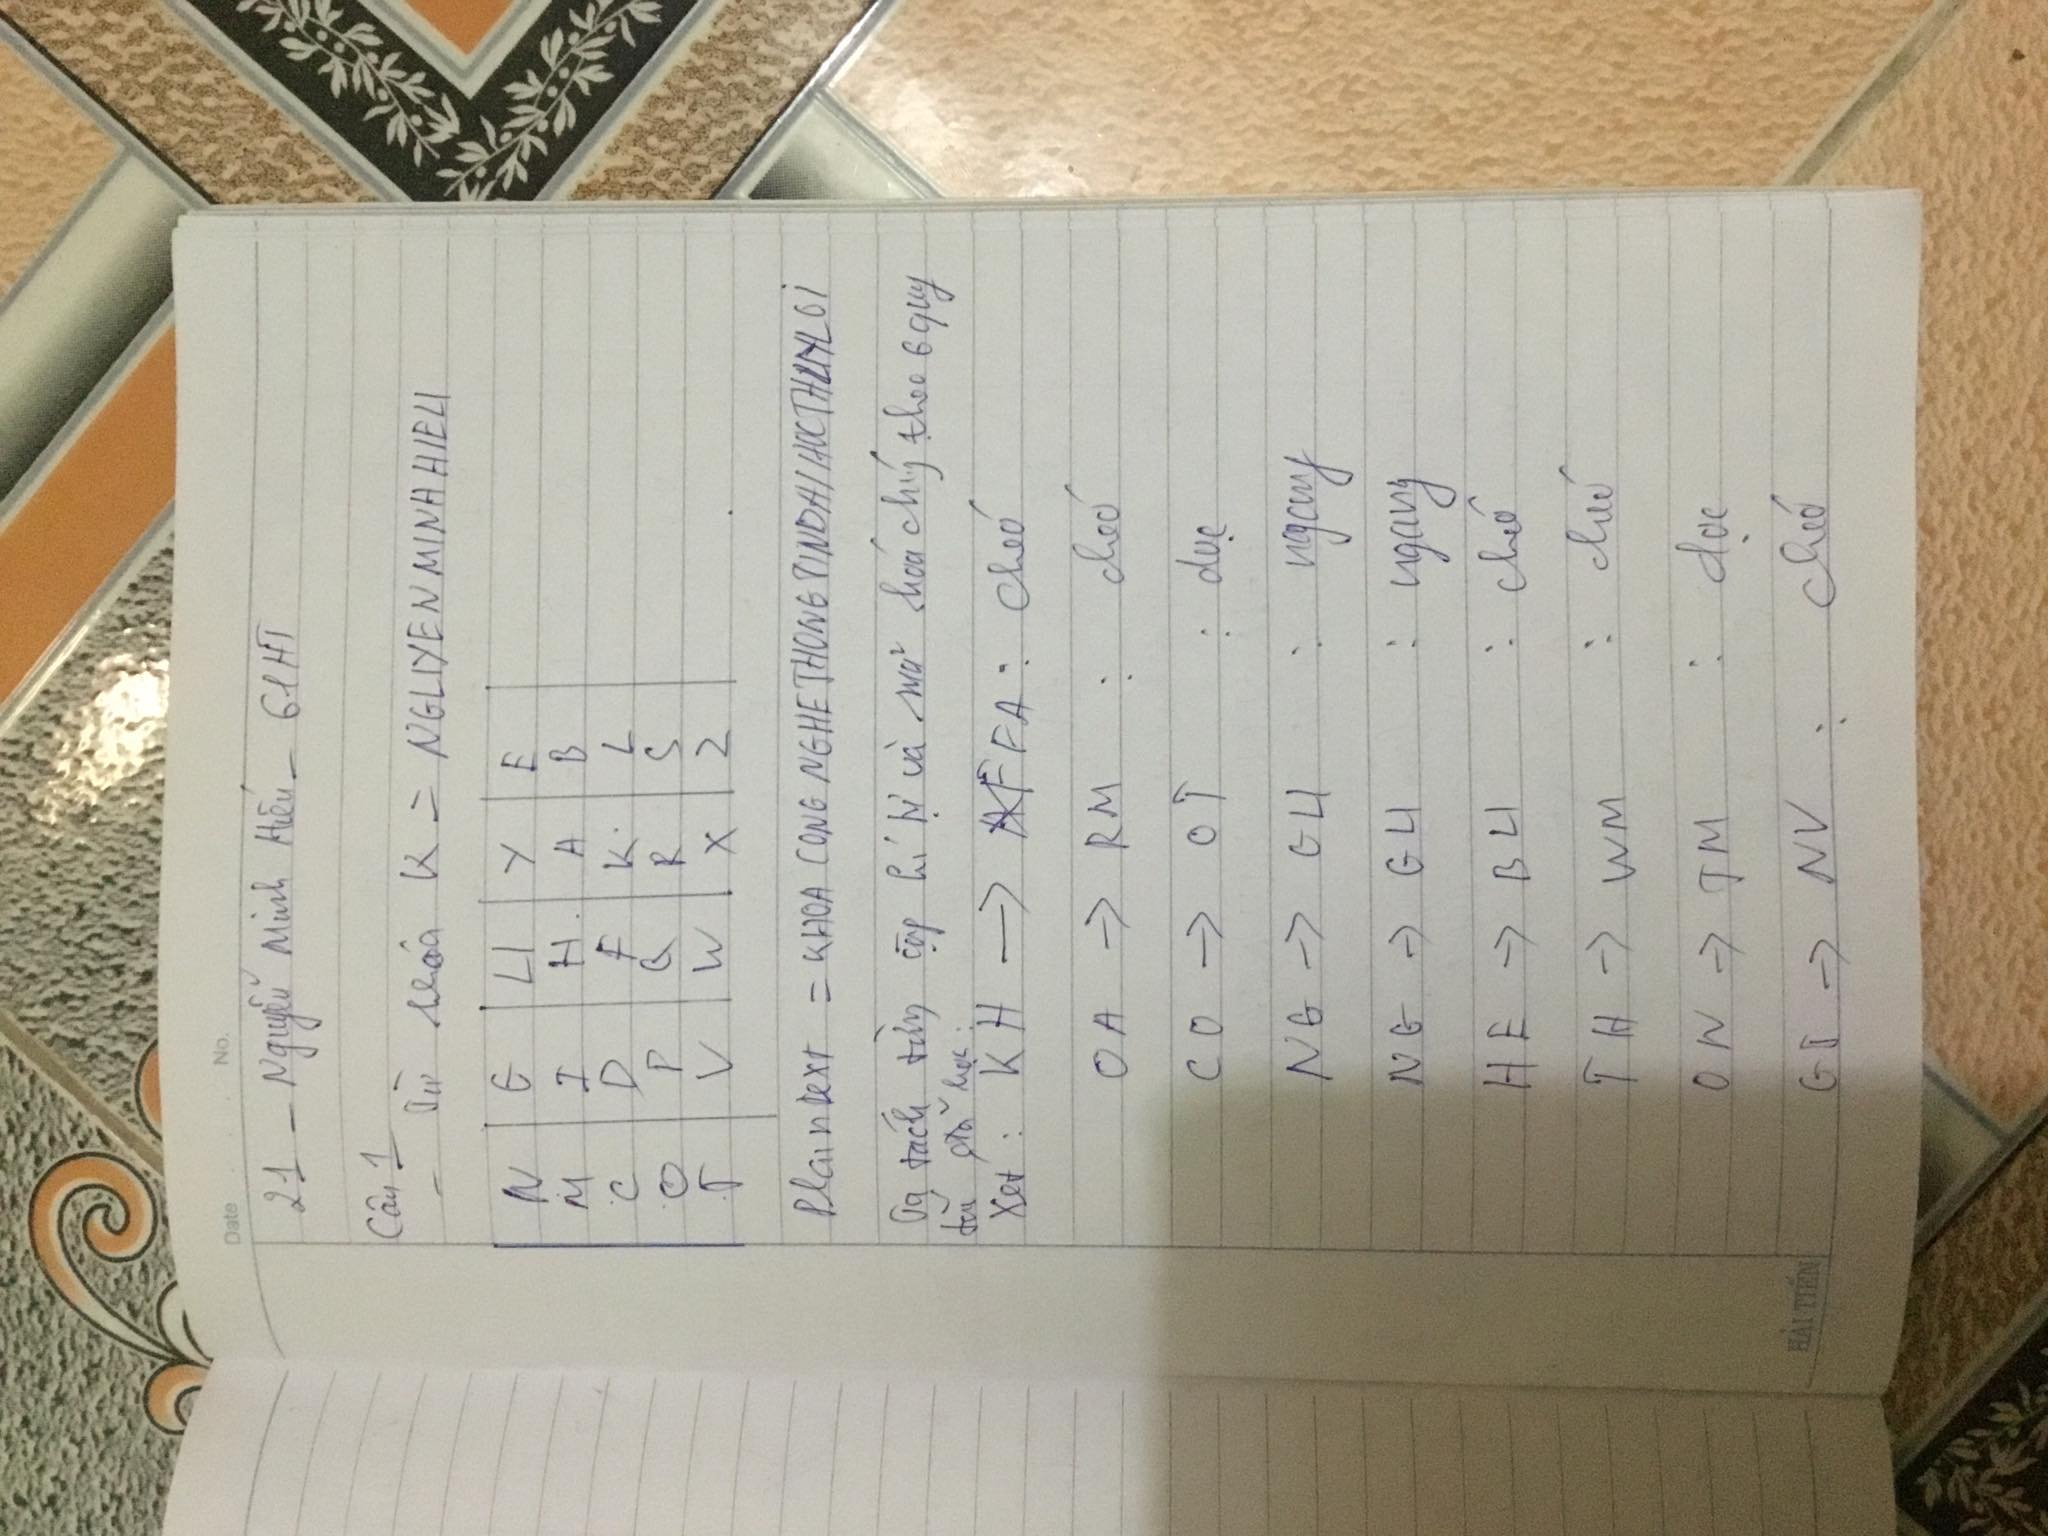 Date . . . No.
21 - Nguyễn Minh Hiếu - 61HT
Câu 1
- Từ khóa K = NGUYENMINHHIEU
N G U Y E
M I H A B
C D F K L
O P Q R S
T V W X Z
Plaintext = KHOA CONG NGHE THONG TIN DAI HOC THUYLOI
Ta tách từng cặp kí tự và mã hoá chúng theo 6 quy
tắc đã học:
Xét: KH → FA : chéo
OA → RM : chéo
CO → OT : dọc
NG → GU : ngang
NG → GU : ngang
HE → BU : chéo
TH → WM : chéo
ON → TM : dọc
GT → NV : chéo
HẢI TIẾN